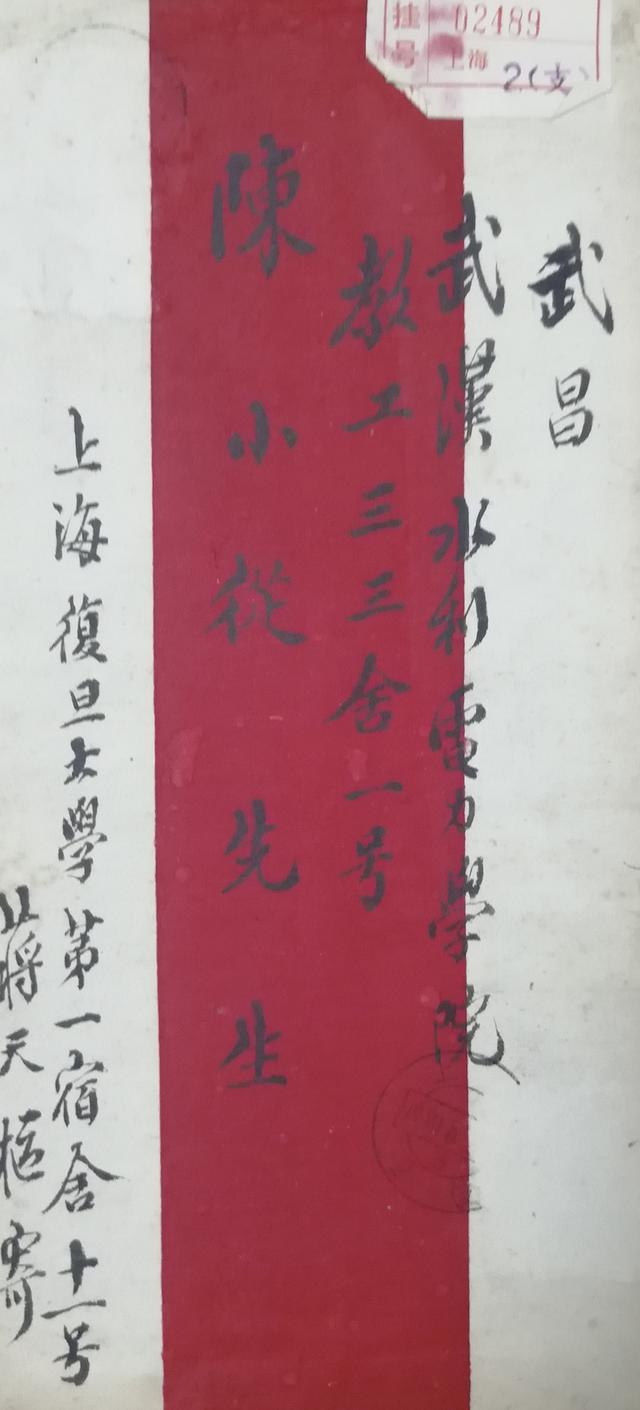 挂号 02489
上海 2(支)
武昌
武漢水利電力學院
教工三三舍一号
陳小從先生
上海復旦大學第一宿舍十一号
蔣天樞寄